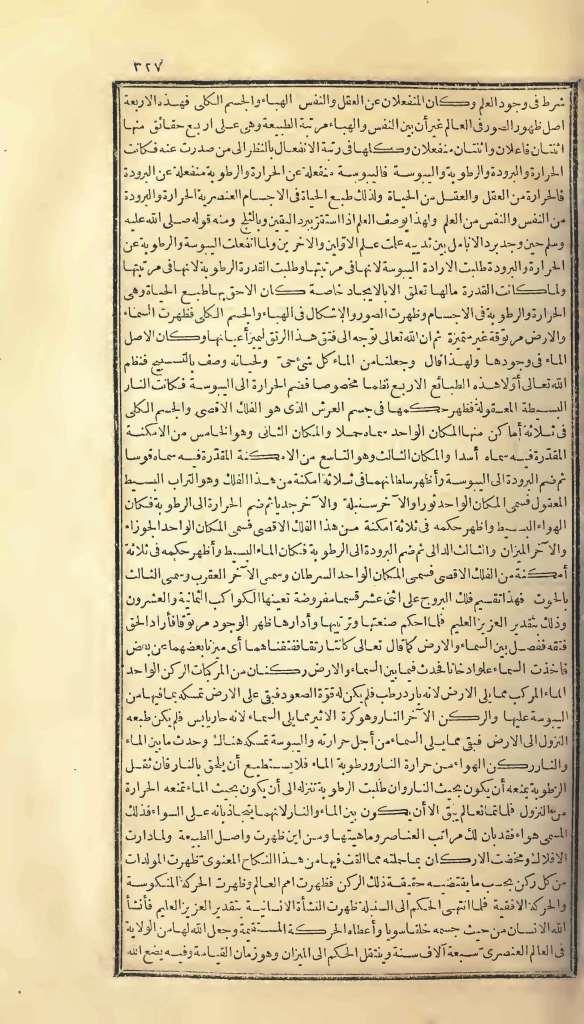 ٣٢٧
شرط فى وجود العلم وكان المنفعلان عن العقل والنفس الهباء والجسم الكلى فهذه الاربعة
اصل ظهور الصور فى العالم غير أن بين النفس والهباء مرتبة الطبيعة وهى على اربع حقائق منها
اثنتان فاعلان واثنتان منفعلان وكلها فى رتبة الانفعال بالنظر الى من صدرت عنه فكانت
الحرارة والبرودة والرطوبة واليبوسة فاليبوسة منفعلة عن الحرارة والرطوبة منفعلة عن البرودة
فالحرارة من العقل والعقل من الحياة ولذلك طبع الحياة فى الاجسام العنصرية الحرارة والبرودة
من النفس والنفس من العلم ولهذا يوصف العلم اذا استقر ببرد اليقين وبالثلج ومنه قوله صلى الله عليه
وسلم حين وجد برد الانامل بين ثدييه علمت علم الاولين والاخرين ولما انفعلت اليبوسة والرطوبة عن
الحرارة والبرودة طلبت الارادة اليبوسة لانها فى مرتبتها وطلبت القدرة الرطوبة لانها فى مرتبتها
ولما كانت القدرة مالها تعلق الا بالايجاد خاصة كان الاحق بها طبع الحياة وهى
الحرارة والرطوبة فى الاجسام وظهرت الصور والاشكال فى الهباء والجسم الكلى فظهرت السماء
والارض مرتوقة غير متميزة ثم ان الله تعالى توجه الى فتق هذا الرتق ليميز أعيانها وكان الاصل
الماء فى وجودها ولهذا قال وجعلنا من الماء كل شئ حى ولحياته وصف بالتسبيح فنظم
الله تعالى أولا هذه الطبائع الاربع نظما مخصوصا فضم الحرارة الى اليبوسة فكانت النار
البسيطة المعقولة فظهر حكمها فى جسم العرش الذى هو الفلك الاقصى والجسم الكلى
فى ثلاثة أماكن منها المكان الواحد سماه حملا والمكان الثانى وهو الخامس من الامكنة
المقدرة فيه سماه أسدا والمكان الثالث وهو التاسع من الامكنة المقدرة فيه سماه قوسا
ثم ضم البرودة الى اليبوسة وأظهر سلطانهما فى ثلاثة امكنة من هذا الفلك وهو التراب البسيط
المعقول فسمى المكان الواحد ثورا والآخر سنبلة والآخر جديا ثم ضم الحرارة الى الرطوبة فكان
الهواء البسيط واظهر حكمه فى ثلاثة امكنة من هذا الفلك الاقصى فسمى المكان الواحد الجوزاء
والآخر الميزان والثالث الدالى ثم ضم البرودة الى الرطوبة فكان الماء البسيط وأظهر حكمه فى ثلاثة
أمكنة من الفلك الاقصى فسمى المكان الواحد السرطان وسمى الآخر العقرب وسمى الثالث
بالحوت فهذا تقسيم فلك البروج على اثنى عشر قسما مفروضة تعينها الكواكب الثمانية والعشرون
وذلك بتقدير العزيز العليم فلما احكم صنعتها وترتيبها وأدارها ظهر الوجود مرتوقا فأراد الحق
فتقه ففصل بين السماء والارض كما قال تعالى كانتا رتقا ففتقناهما أى ميز بعضهما عن بعض
فاخذت السماء علوا دخانا فحدث فيما بين السماء والارض ركنان من المركبات الركن الواحد
الماء المركب مما يلى الارض لانه بارد رطب فلم يكن له قوة الصعود فبقى على الارض تمسكه بما فيها من
اليبوسة عليها والركن الآخر النار وهو كرة الاثير مما يلى السماء لانه حار يابس فلم يكن طبعه
النزول الى الارض فبقى مما يلى السماء من أجل حرارته واليبوسة تمسكه هنالك وحدث ما بين الماء
والنار ركن الهواء من حرارة النار ورطوبة الماء فلا يستطيع أن يلحق بالنار فان ثقل
الرطوبة تمنعه أن يكون بحيث النار وان طلبت الرطوبة تنزله الى أن يكون بحيث الماء تمنعه الحرارة
من النزول فلما تمانعا لم يبق الا أن يكون بين الماء والنار لانهما يتجاذبانه على السواء فذلك
المسمى هواء فقد بان لك مراتب العناصر وماهيتها ومن اين ظهرت واصل الطبيعة ولما دارت
الافلاك ومخضت الاركان بما حملته مما القت فيها من هذا النكاح المعنوى ظهرت المولدات
من كل ركن بحسب ما يقتضيه حقيقة ذلك الركن فظهرت امم العالم وظهرت الحركة المنكوسة
والحركة الافقية فلما انتهى الحكم الى السنبلة ظهرت النشأة الانسانية بتقدير العزيز العليم فأنشأ
الله الانسان من حيث جسمه خلقا سويا وأعطاه الحركة المستقيمة وجعل الله لها من الولاية
فى العالم العنصرى سبعة آلاف سنة وينتقل الحكم الى الميزان وهو زمان القيامة وفيه يضع الله